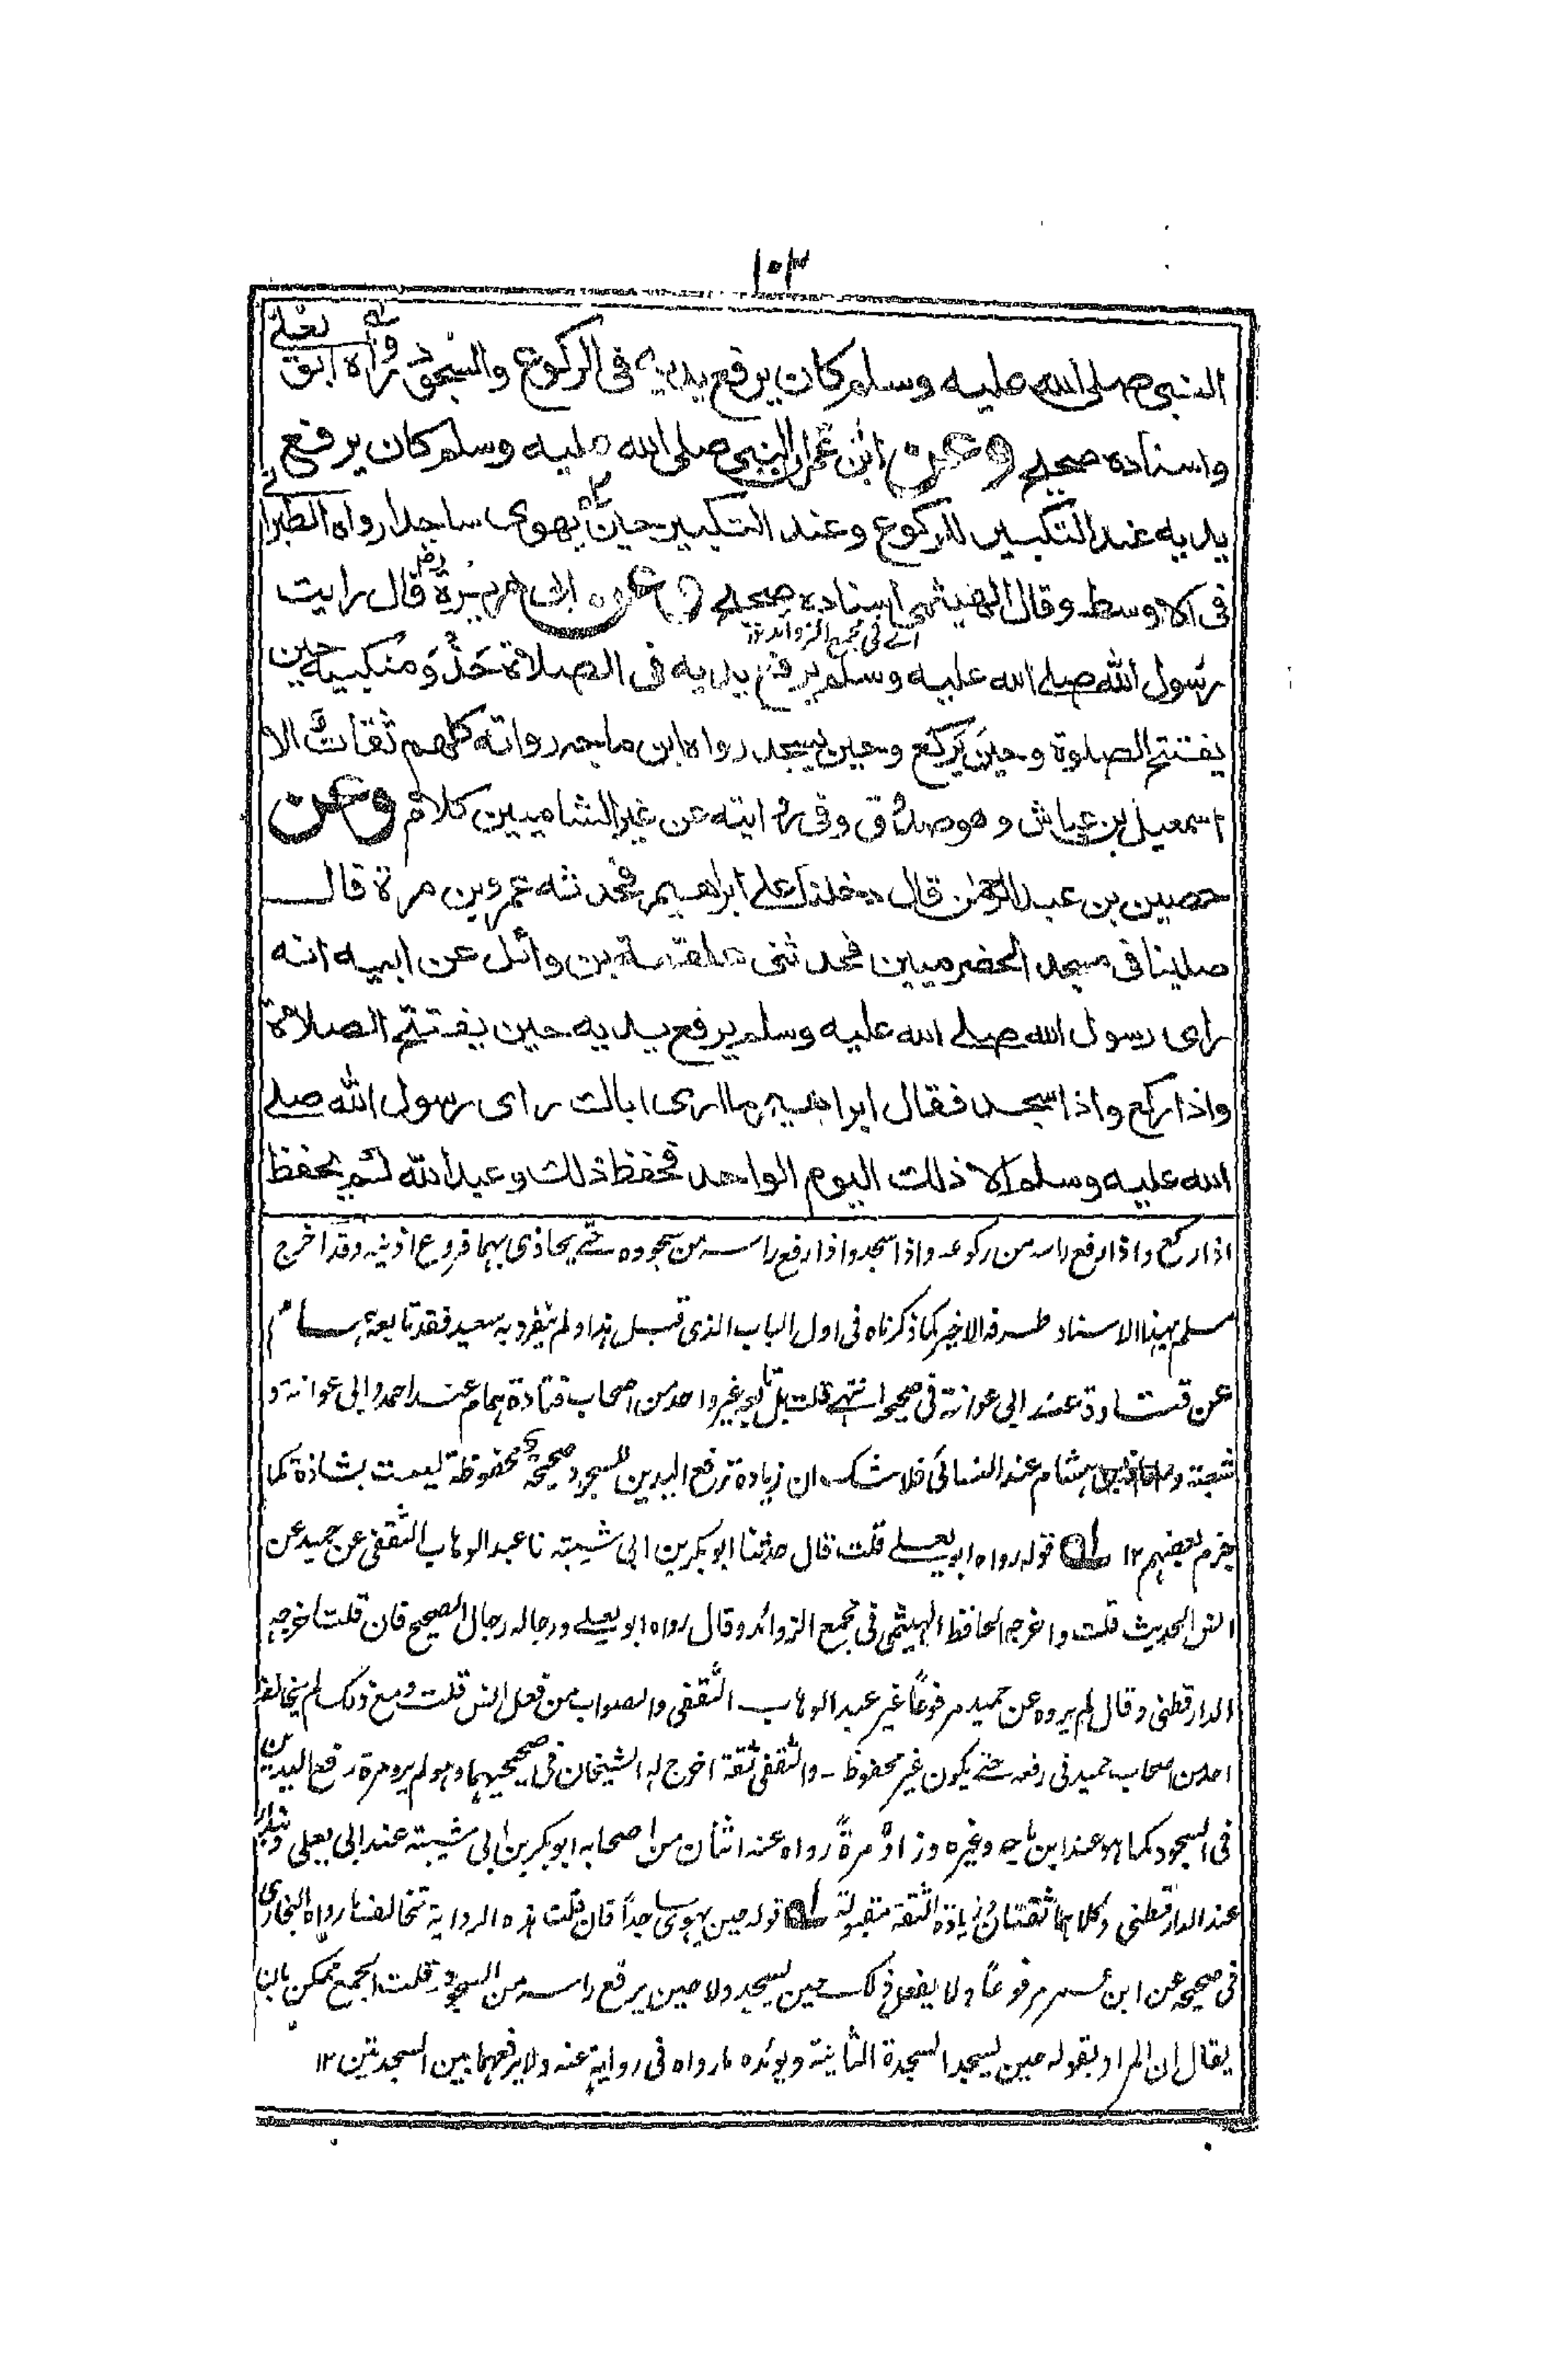 ١٠٣
النبى صلى الله عليه وسلم كان يرفع يديه فى الركوع والسجود رواه ابو يعلى
واسناده صحيح وعن ابن عمر ان النبى صلى الله عليه وسلم كان يرفع
يديه عند التكبير للركوع وعند التكبير حين يهوى ساجدا رواه الطبرانى
فى الاوسط وقال الهيثمى اسناده صحيح وعن ابى هريرة رض قال رايت
اے فى مجمع الزوائد
رسول الله صلے الله عليه وسلم يرفع يديه فى الصلاة حذو منكبيه حين
يفتتح الصلوة وحين يركع وحين يسجد رواه ابن ماجه رواته كلهم ثقات الا
اسمعيل بن عياش وهو صدوق وفى روايته عن غير الشاميين كلام وعن
حصين بن عبد الرحمٰن قال دخلنا على ابراهيم فحدثه عمرو بن مرة قال
صلينا فى مسجد الحضرميين فحدثنى علقمة بن وائل عن ابيه انه
راى رسول الله صلے الله عليه وسلم يرفع يديه حين يفتتح الصلاة
واذا ركع واذا سجد فقال ابراهيم ما ارى اباك راى رسول الله صلے
الله عليه وسلم الا ذلك اليوم الواحد فحفظ ذلك وعبد الله لم يحفظ
اذا ركع واذا رفع راسه من ركوعه واذا سجد واذا رفع راسه من سجوده حتے يحاذى بهما فروع اذنيه وقد اخرج
مسلم بهذا الاسناد طرفه الاخير كما ذكرناه فى اول الباب الذى قبل هذا ولم ينفرد به سعيد فقد تابعه همام
عن قتادة عند ابى عوانة فى صحيحه انتهے قلت بل تابعه غير واحد من اصحاب قتادة همام عند احمد وابى عوانة و
شعبة و هشام عند النسائى فلا شك ان زيادة رفع اليدين للسجود صحيحة محفوظة ليست بشاذة كما
جزم بعضهم ١٢ ــه قوله رواه ابو يعلے قلت قال حدثنا ابو بكر بن ابى شيبته نا عبد الوهاب الثقفى عن حميد عن
انس الحديث قلت واخرجه الحافظ الهيثمى فى مجمع الزوائد وقال رواه ابو يعلے ورجاله رجال الصحيح فان قلت اخرجه
الدارقطنى وقال لم يروه عن حميد مرفوعاً غير عبد الوهاب الثقفى والصواب من فعل انس قلت ومع ذلك لم يخالفه
احد من اصحاب حميد فى رفعه حتے يكون غير محفوظ - والثقفى ثقة اخرج له الشيخان فى صحيحيهما وهو لم يرو مرة رفع اليدين
فى السجود كما هو عند ابن ماجه وغيره وزاد مرةً رواه عنه اثنان من اصحابه ابو بكر بن ابى شيبته عند ابى يعلى وبندار
عند الدارقطنى وكلاهما ثقتان وزيادة الثقة مقبولة ــه قوله حين يهوى ساجداً فان قلت هذه الرواية تخالف ما رواه البخارى
فى صحيحه عن ابن عمر مرفوعاً ولا يفعل ذلك حين يسجد ولا حين يرفع راسه من السجود قلت الجمع ممكن بان
يقال ان المراد بقوله حين يسجد السجدة الثانية ويؤيده ما رواه فى رواية عنه ولا يرفعهما بين السجدتين ١٢